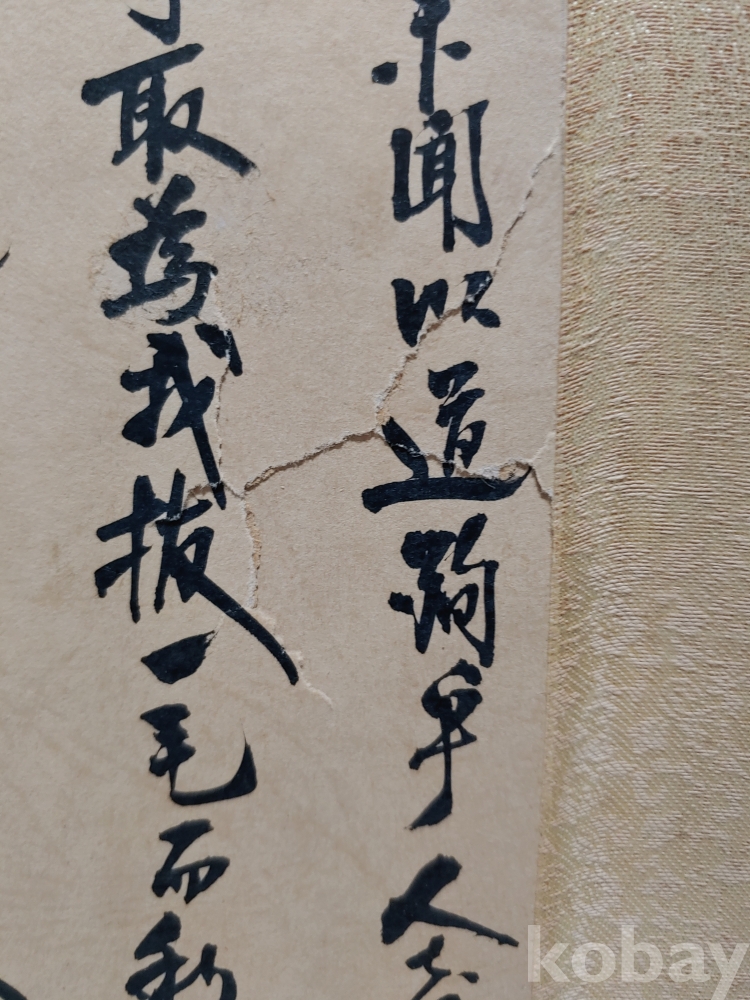 未聞以道殉乎人
取為我拔一毛而利
kobay